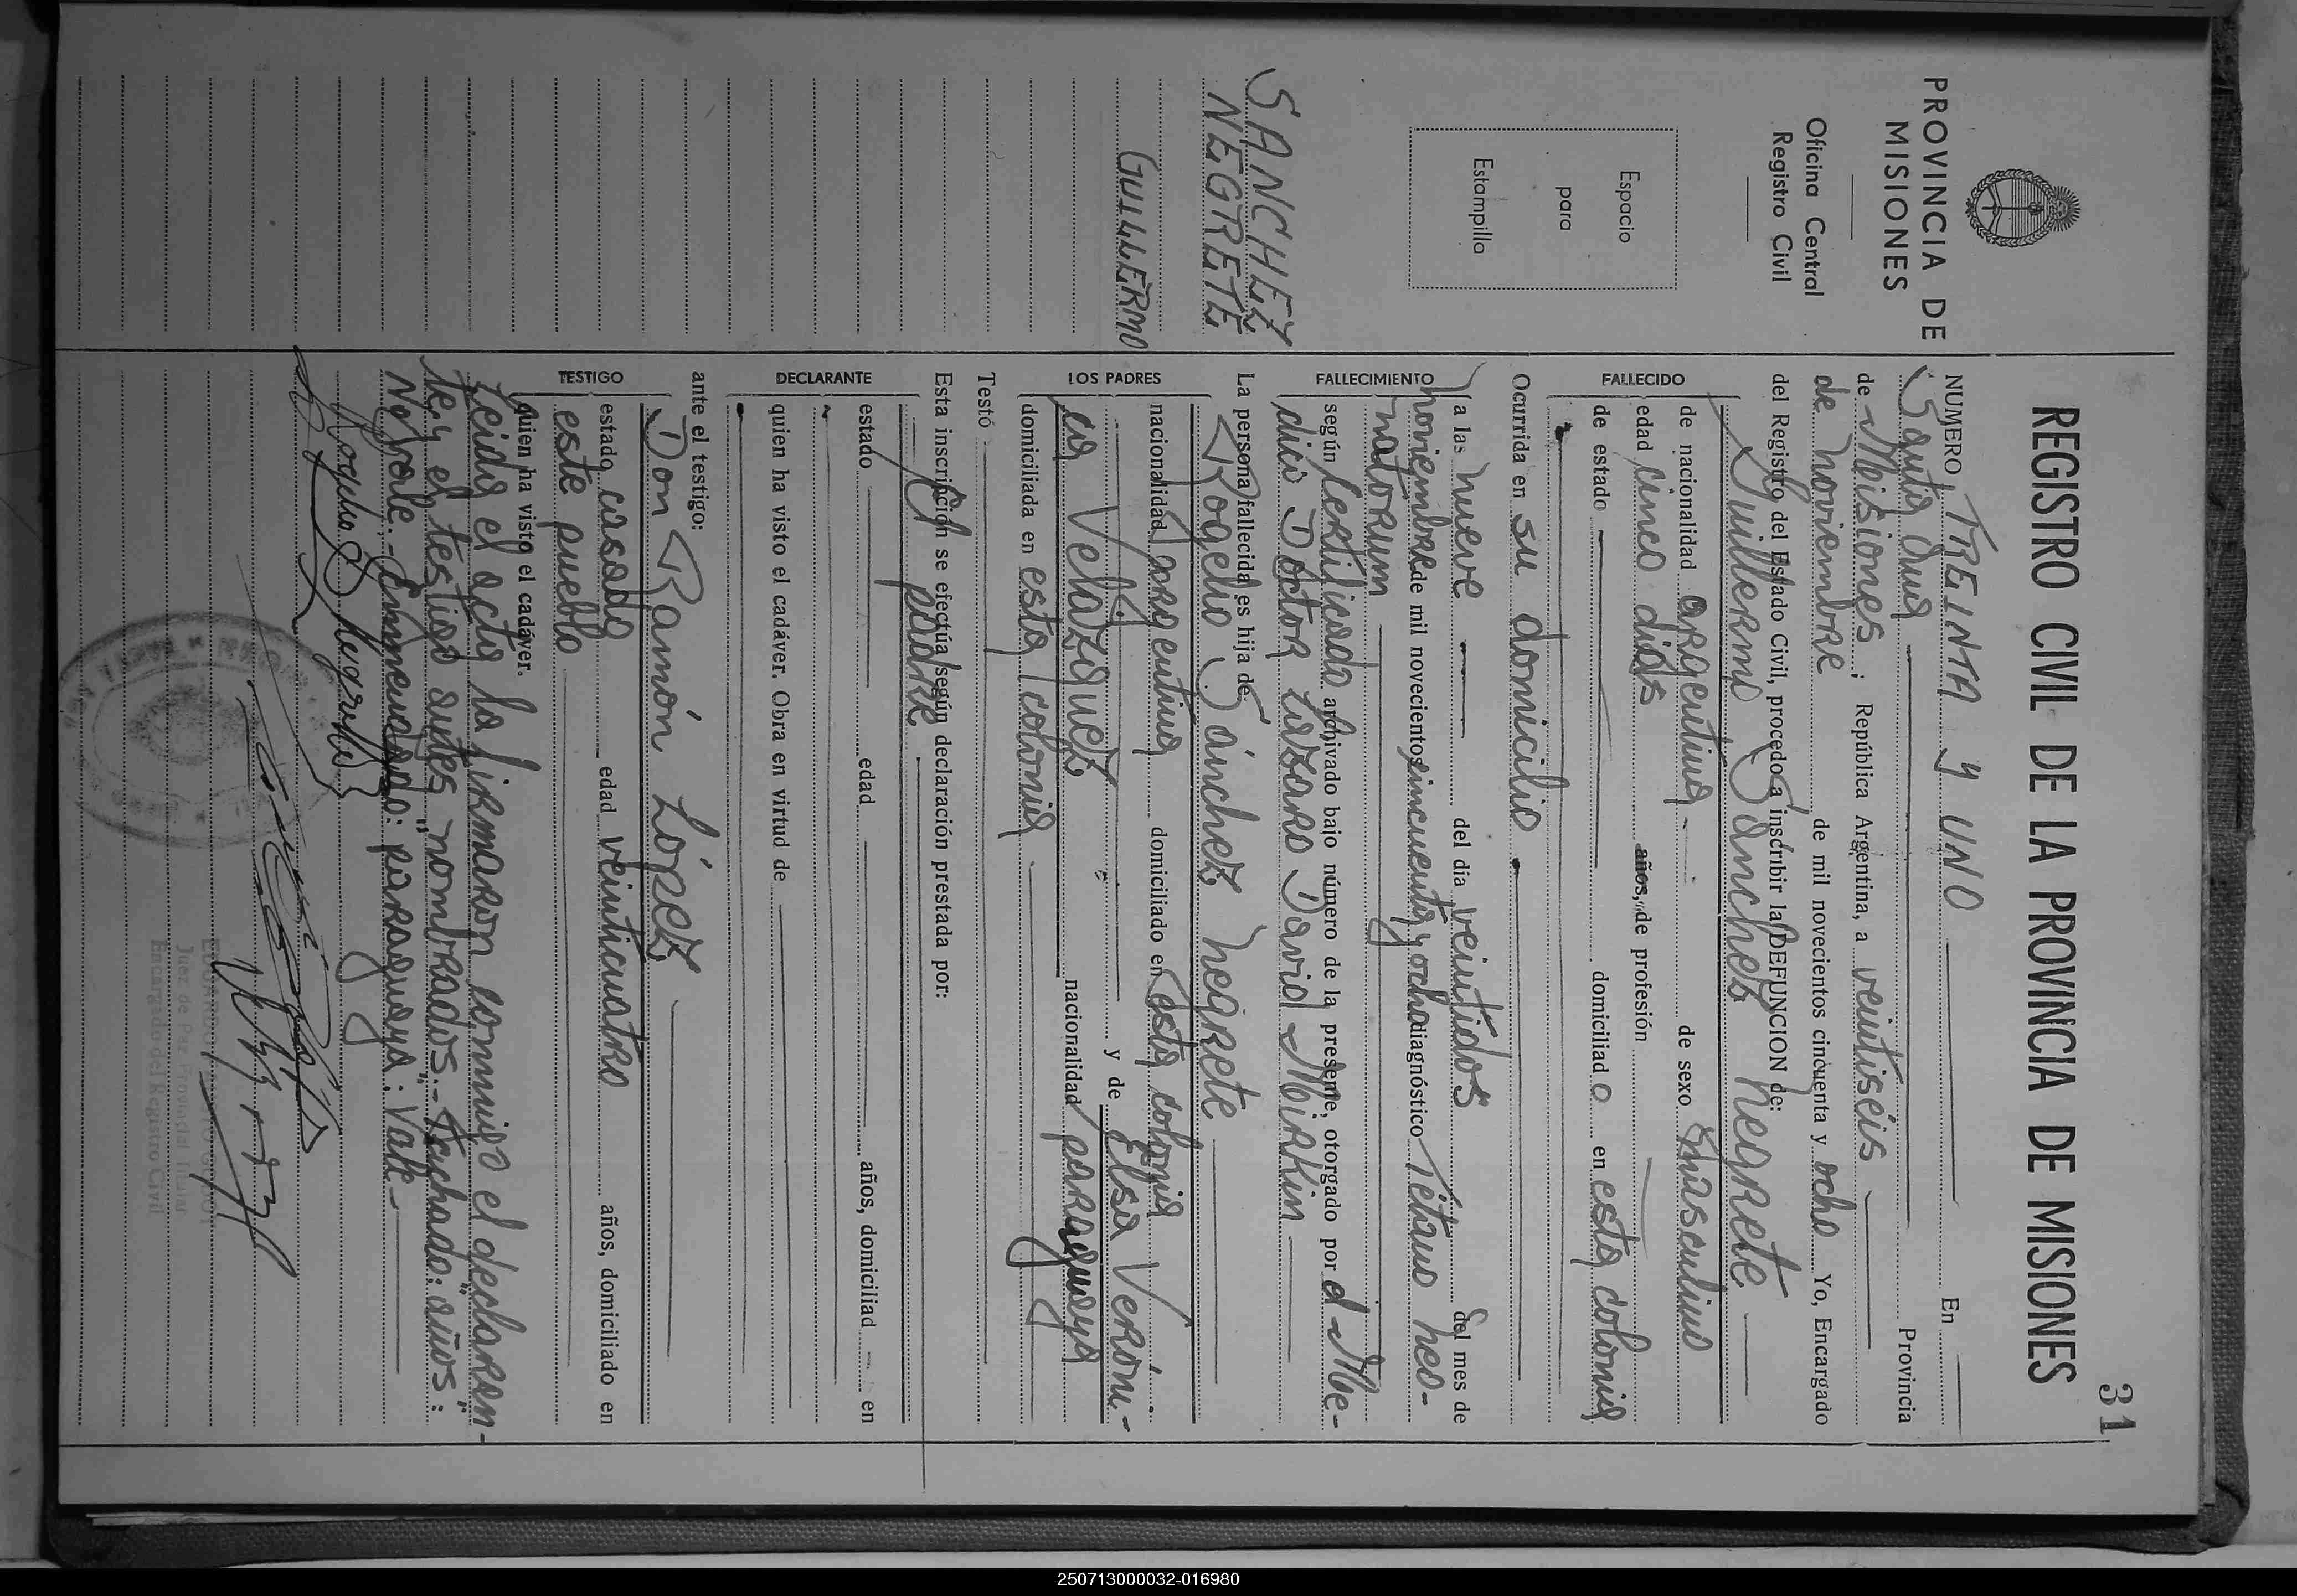 31
REGISTRO CIVIL DE LA PROVINCIA DE MISIONES
PROVINCIA DE
MISIONES
Oficina Central
Registro Civil
Espacio
para
Estampilla
SANCHEZ
NEGRETE
GUILLERMO
NUMERO TREINTA Y UNO En
Santa Ana Provincia
de Misiones; República Argentina, a veintiseis
de noviembre de mil novecientos cincuenta y ocho Yo, Encargado
del Registro del Estado Civil, procedo a inscribir la DEFUNCION de:
Guillermo Sánchez Negrete
FALLECIDO
de nacionalidad argentina de sexo masculino
edad cinco días años, de profesión
de estado domiciliado en esta colonia
Ocurrida en su domicilio
FALLECIMIENTO
a las nueve del día veintidos del mes de
noviembre de mil novecientos cincuenta y ocho diagnóstico Tétano neo-
natorum
según certificado archivado bajo número de la presente, otorgado por el Mé-
dico Doctor Lázaro David Mirkin
La persona fallecida es hija de:
Rogelio Sánchez Negrete
LOS PADRES
nacionalidad argentina domiciliado en esta colonia
y de Elsa Veróni-
ca Velazquez nacionalidad paraguaya
domiciliada en esta colonia
Testó
Esta inscripción se efectúa según declaración prestada por:
El padre
DECLARANTE
estado edad años, domiciliad en
quien ha visto el cadáver. Obra en virtud de
ante el testigo:
Don Ramón López
TESTIGO
estado casado edad veinticuatro años, domiciliado en
este pueblo
quien ha visto el cadáver.
Leida el acta la firmaron conmigo el declaran-
te y el testigo antes nombrados.- Tachado: "años":
No vale.- Enmendado: "paraguaya": Vale-
Rogelio S Negrete
Juez de Paz Provincial Titular
Encargado del Registro Civil
250713000032-016980